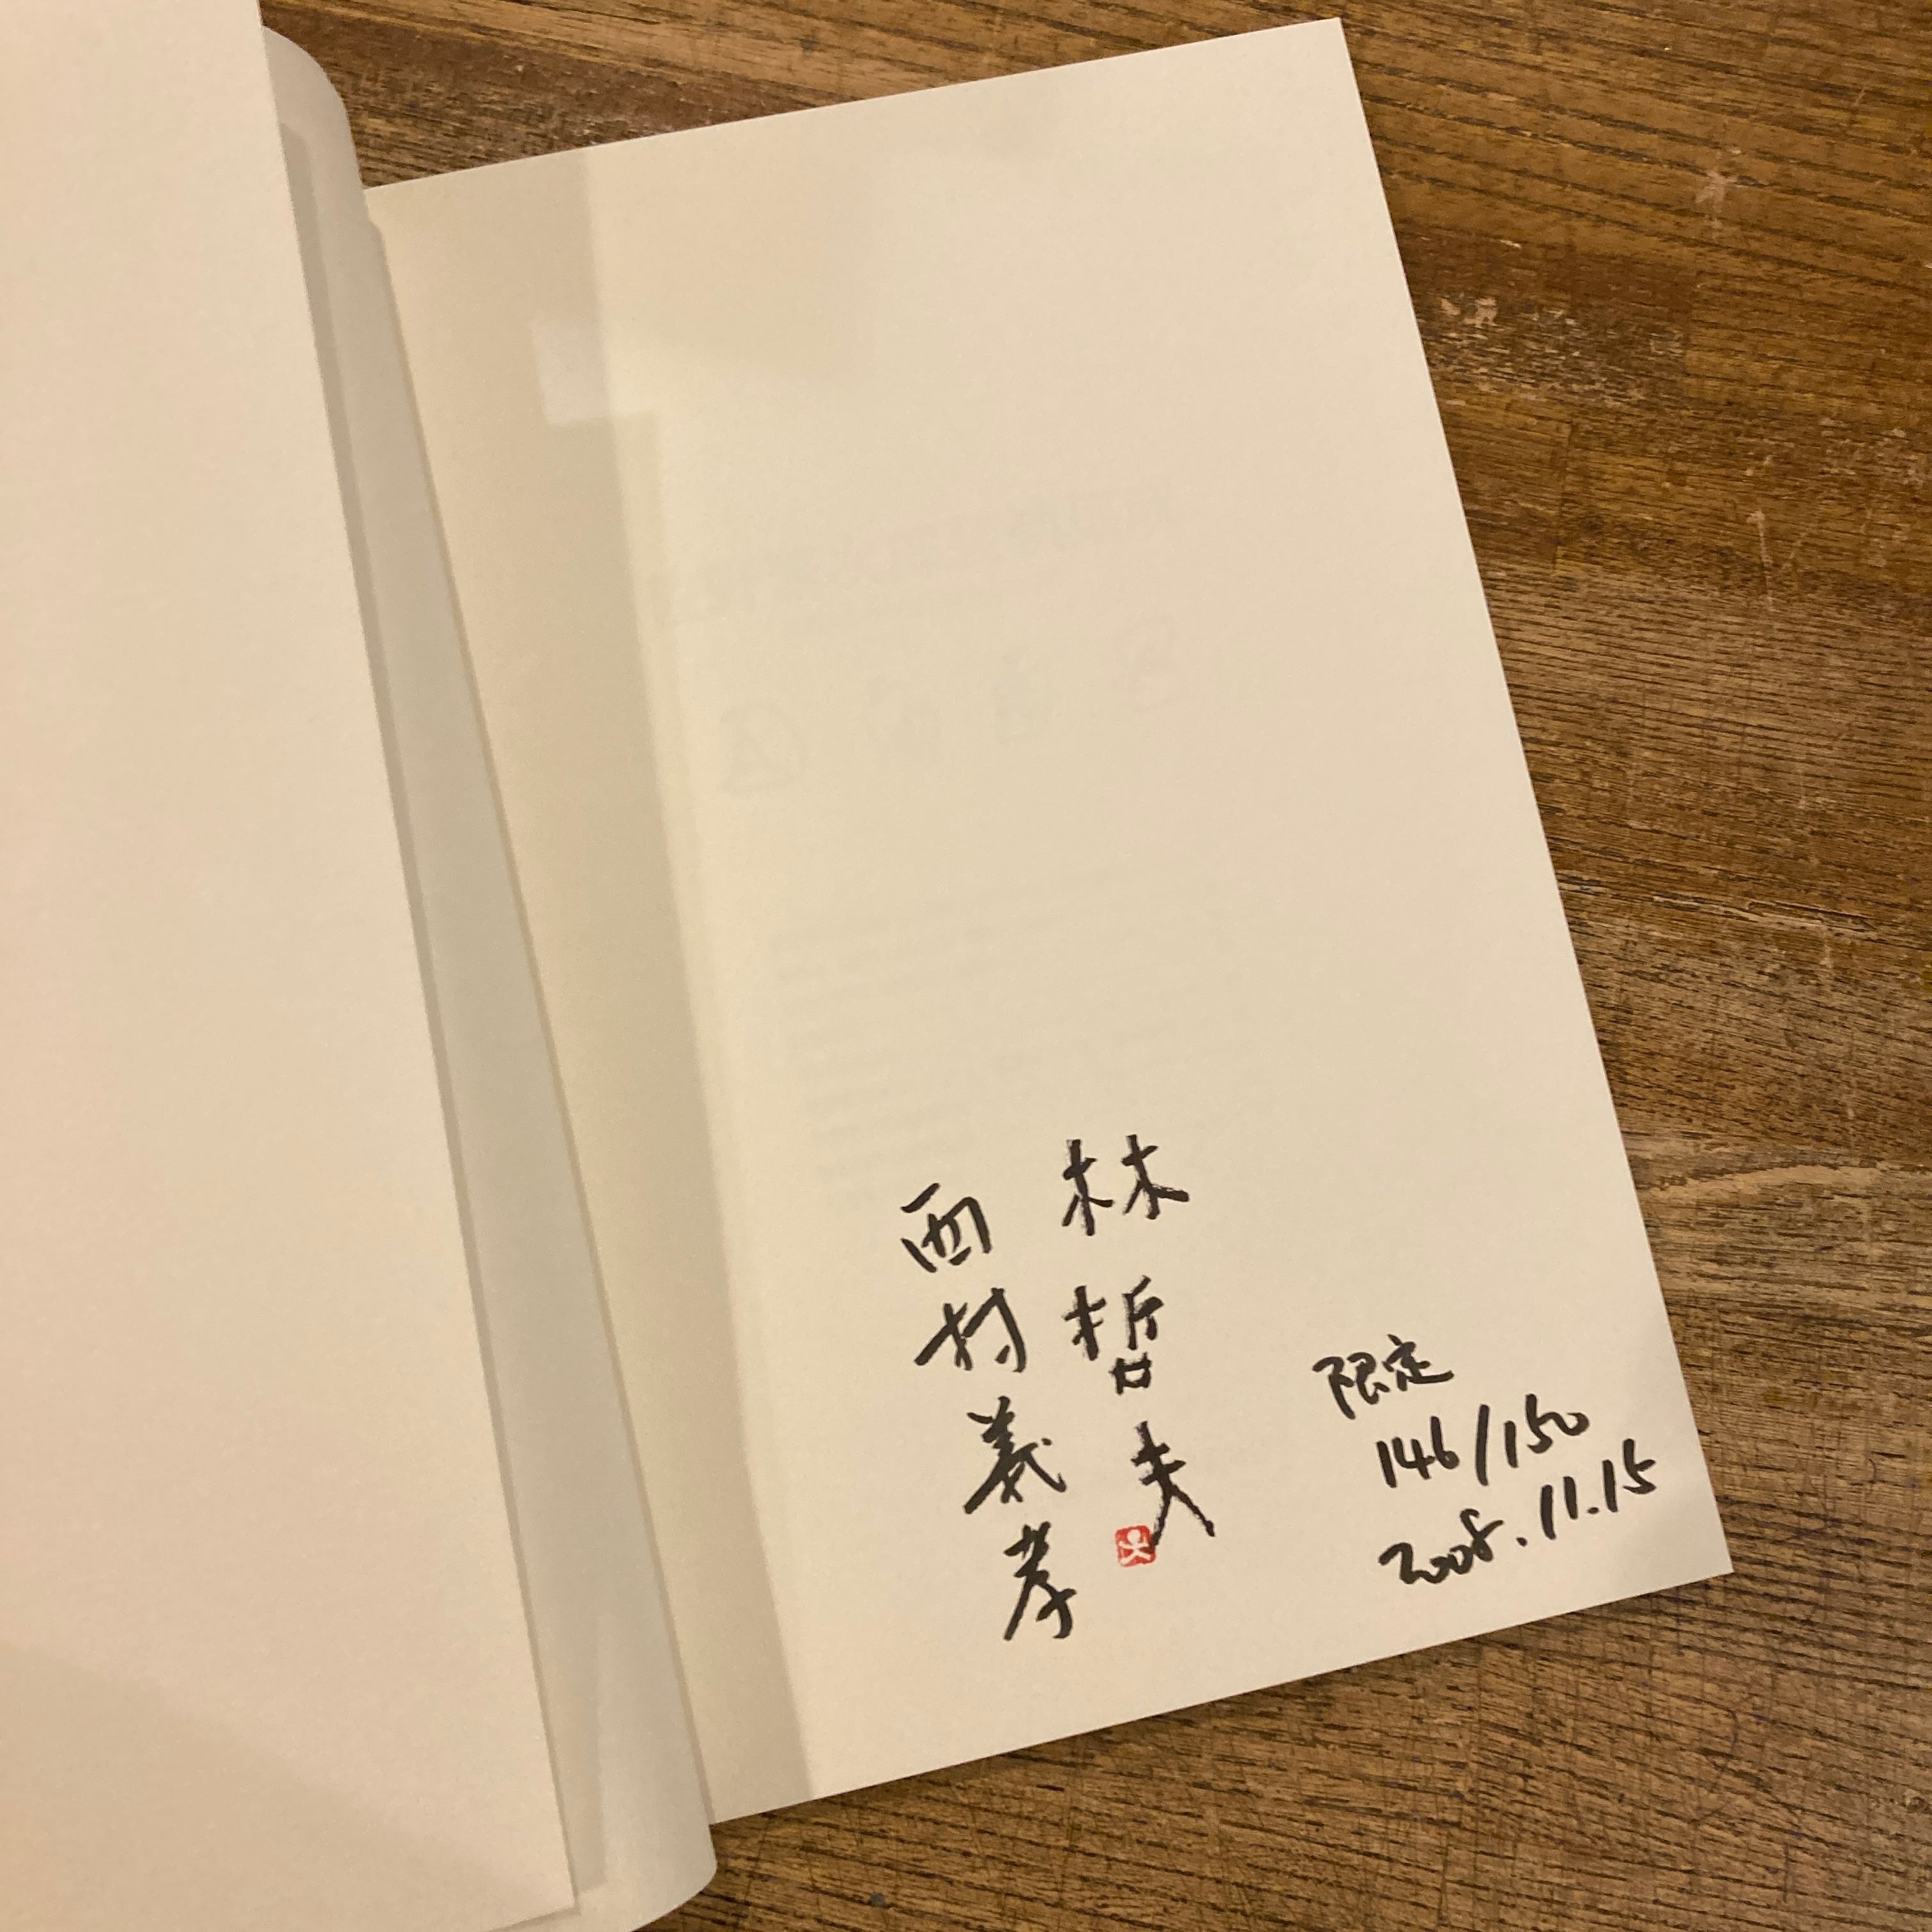 限定
146/150
2008.11.15
林哲夫
西村義孝